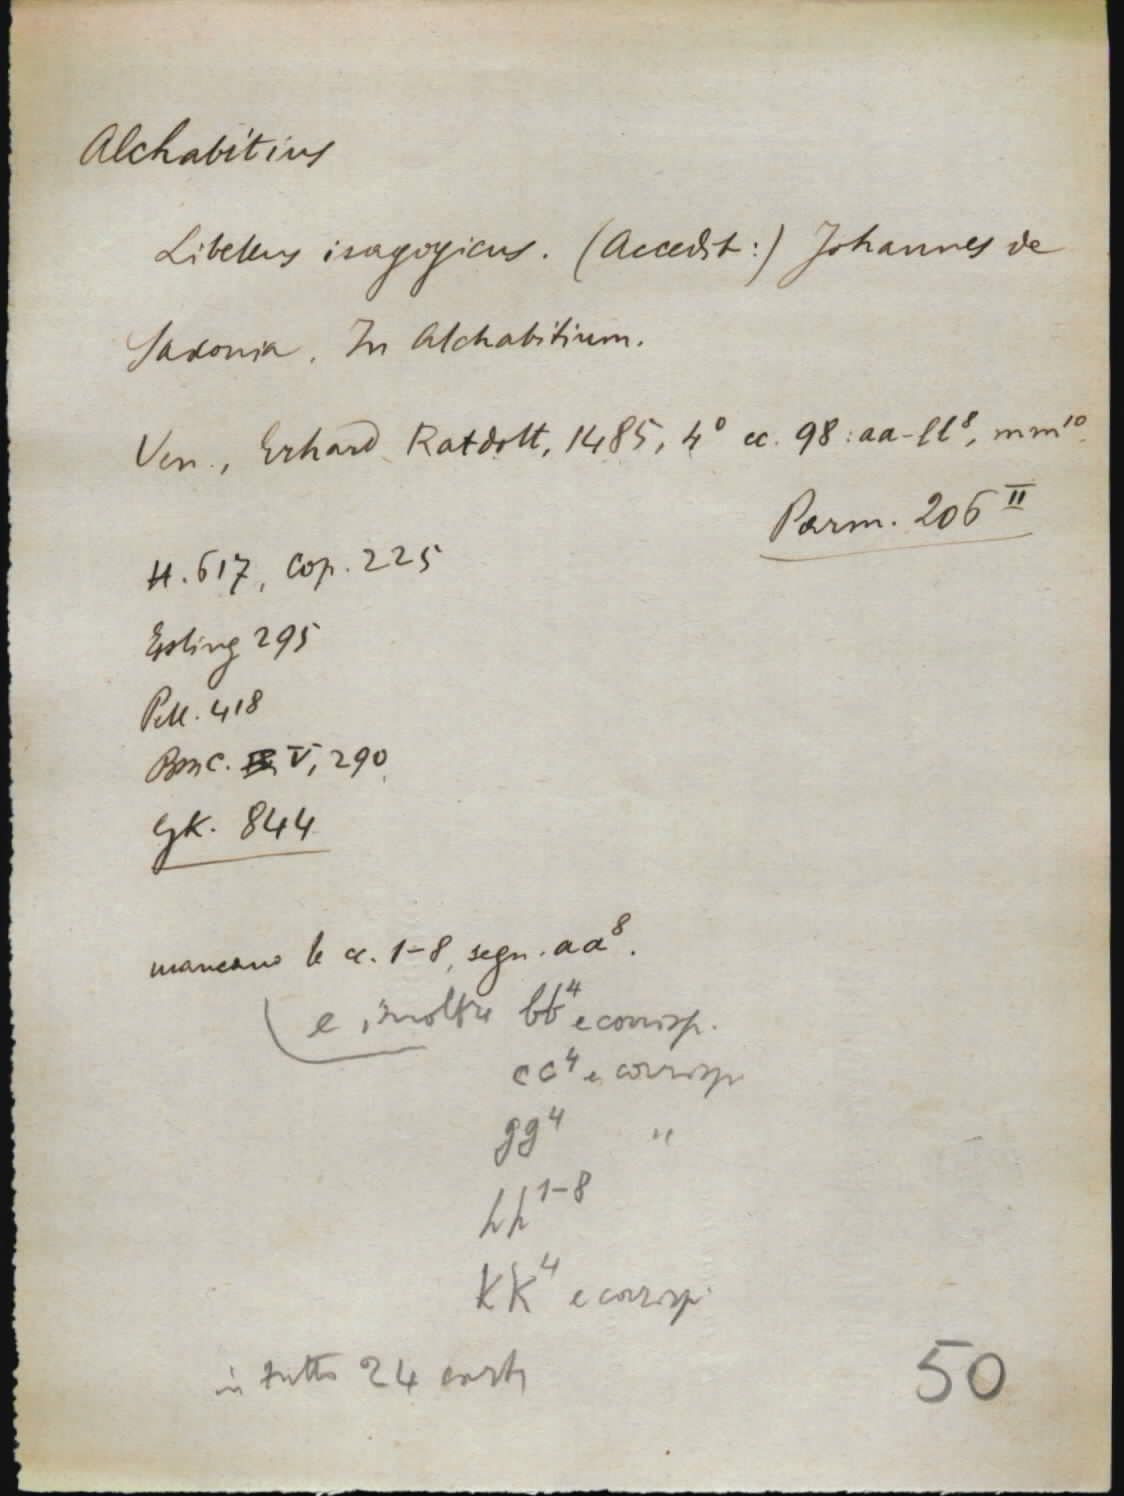 Alchabitius
Libellus isagogicus. (Accedit:) Johannes de
Saxonia. In Alchabitium.
Ven., Erhard Ratdolt, 1485, 4° cc. 98: aa-ll⁸, mm¹⁰.
Parm. 206 II
H. 617, Cop. 225
Essling 295
Pell. 418
BMC. V, 290
GK. 844
mancano le cc. 1-8, segn. aa⁸.
e, inoltre bb⁴ e corrisp.
cc⁴ e corrisp
gg⁴ "
hh¹⁻⁸
kk⁴ e corrisp.
in tutto 24 carte
50